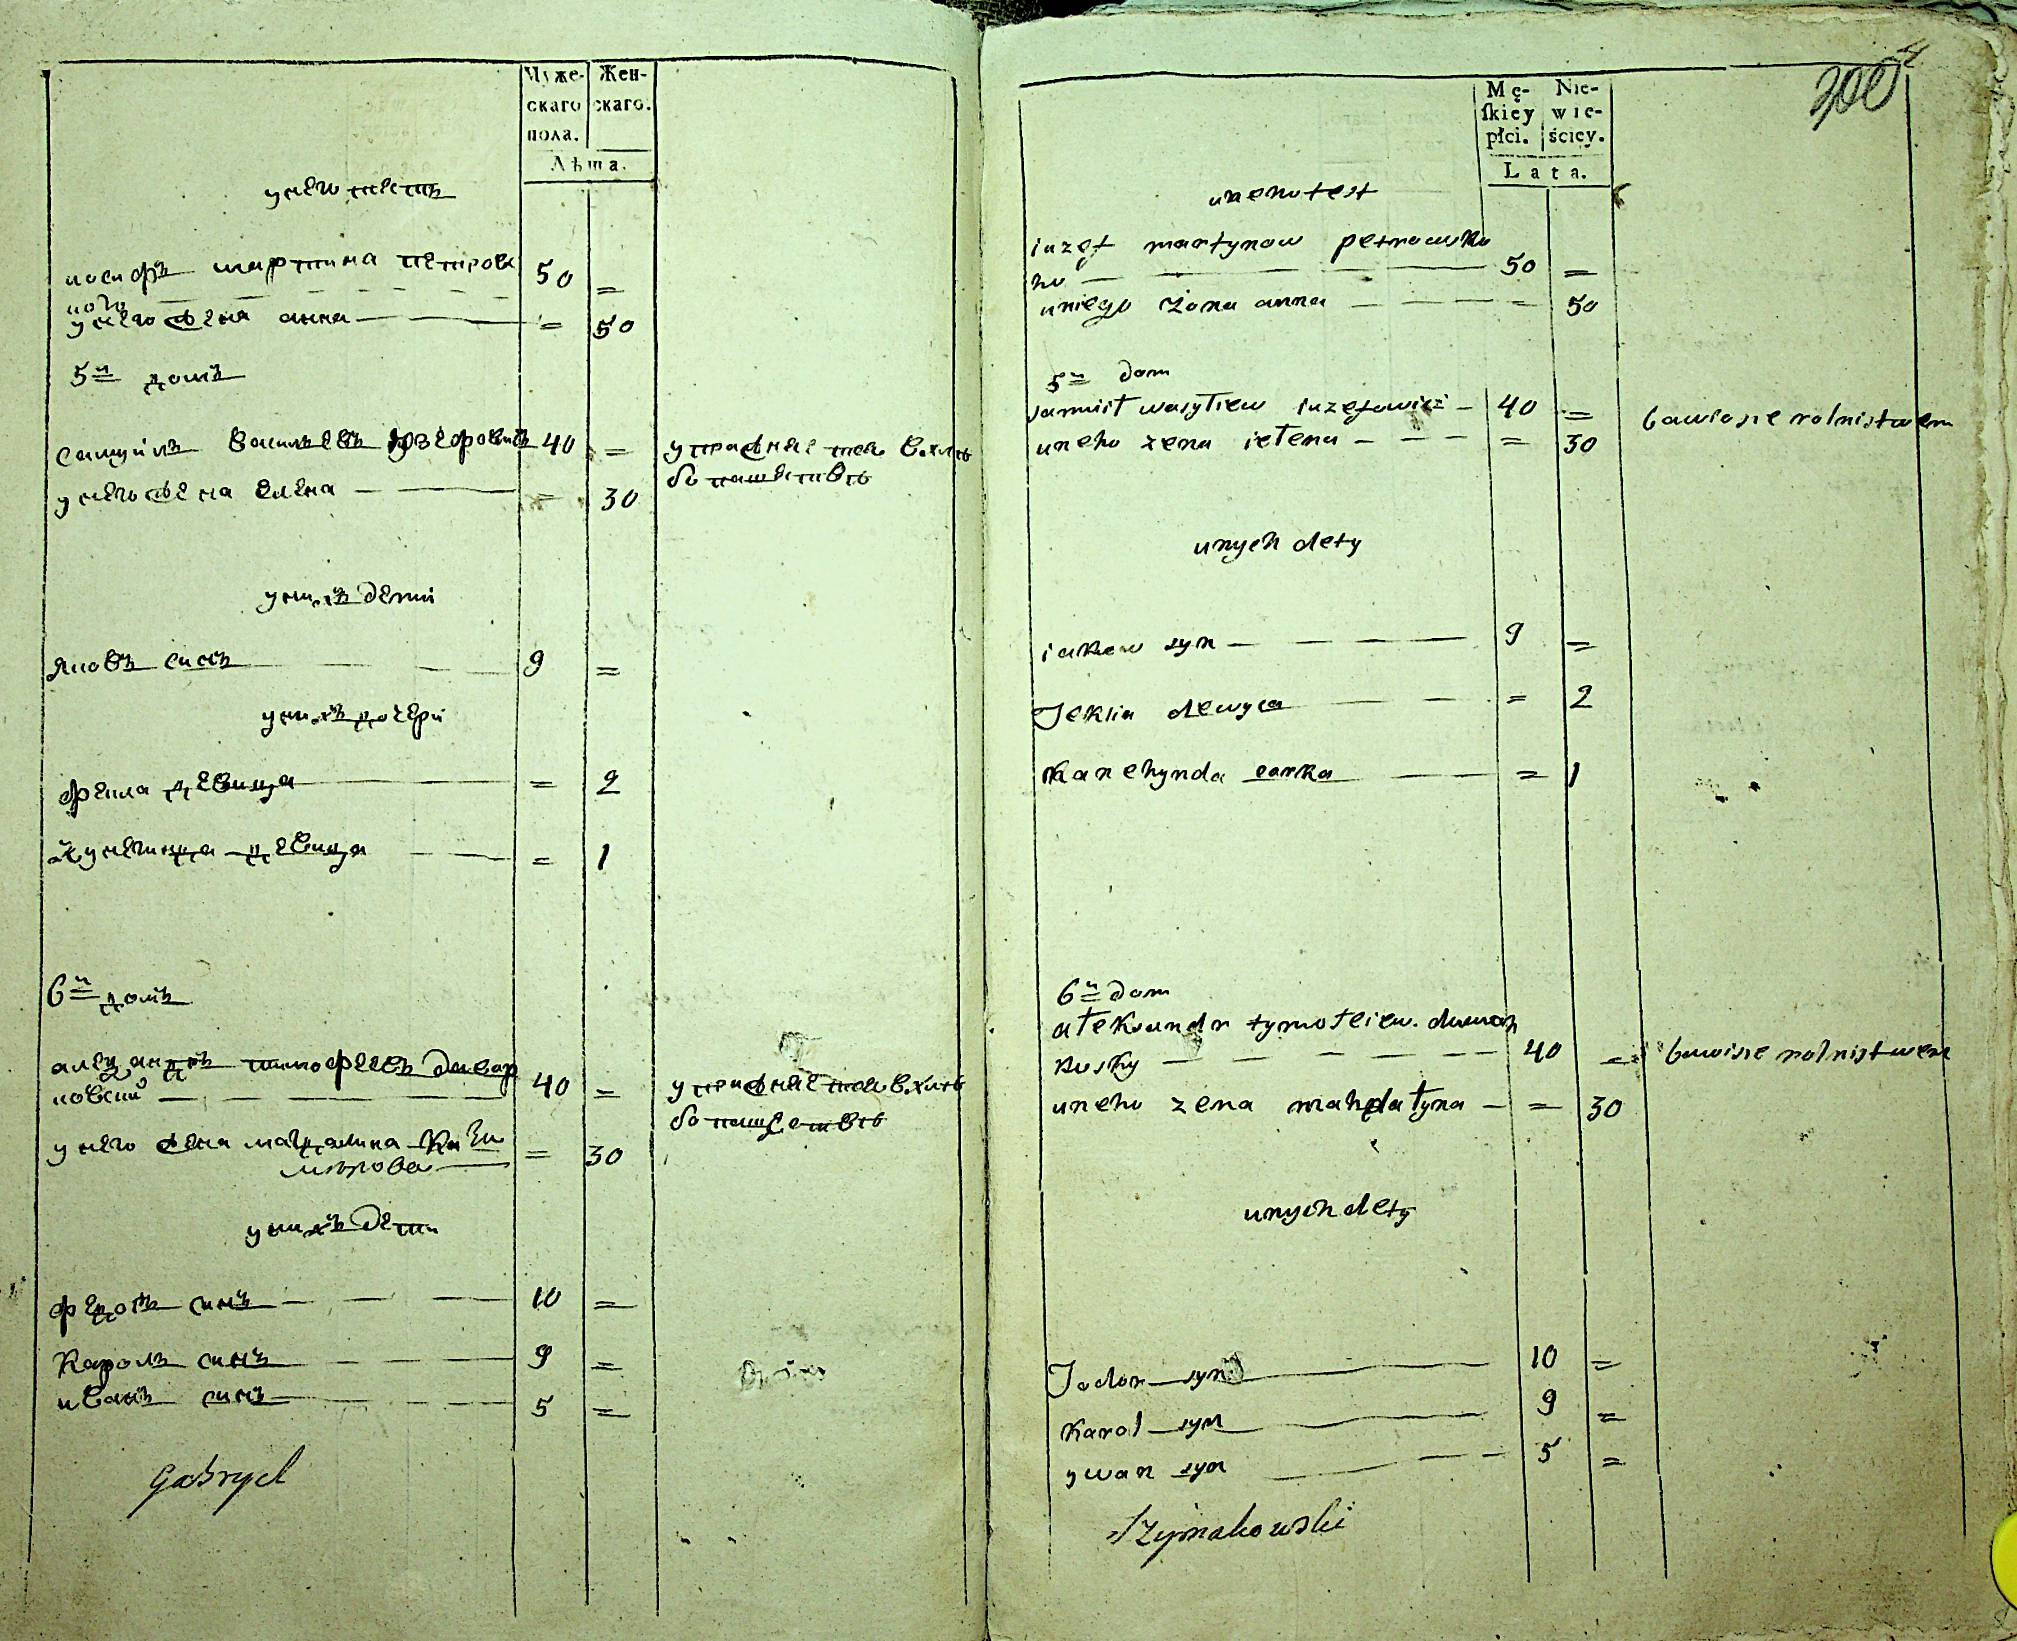 Муже-
скаго
пола.
Жен-
скаго.
Лѣта.
унего тесть
иосифъ мартина петровс
кого 50 =
унего жена анна = 50
5й домъ
самуилъ василевъ юзефовичъ 40 =
упражняетса вхлѣ
бопашествѣ
унего жена елена = 30
унихъ дети
яковъ синъ 9 =
унихъ дочери
фекла девица = 2
кунегинда девица = 1
6й домъ
александръ тимофеевъ давар
новский 40 =
упражняетса вхлѣ
бопашествѣ
унего жена магдалина Кази
мѣрова = 30
унихъ дети
федоръ синъ 10 =
Кароль синъ 9 =
иванъ синъ 5 =
Gabryel
200
Mę-
skiey
płci.
Nie-
wie-
ściey.
Lata.
uneho test
iuzef martynow petrowsko
ho 50 =
uniego żona anna = 50
5й dom
samuił wasyliew iuzefowicz 40 = bawiasie rolnistwem
uneho zena iełena = 30
unych dety
iakow syn 9 =
Feklia dewyca = 2
Kanehynda carka = 1
6й dom
ałeksandr tymofeiew.
40 = bawisie rolnistwem
uneho zena mahdałyna = 30
unych dety
Fador syn 10 =
Karol syn 9 =
ywan syn 5 =
Szymakowski